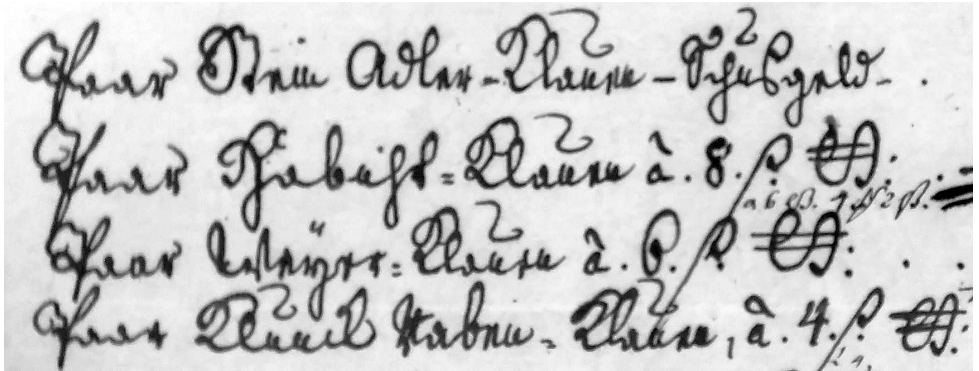 Paar Stein Adler-Klauen-Schusgeld-.
Paar Habicht-Klauen à. 8. ß
Paar Weyer-Klauen à. 6. ß
Paar Raben-Klauen, à. 4. ß